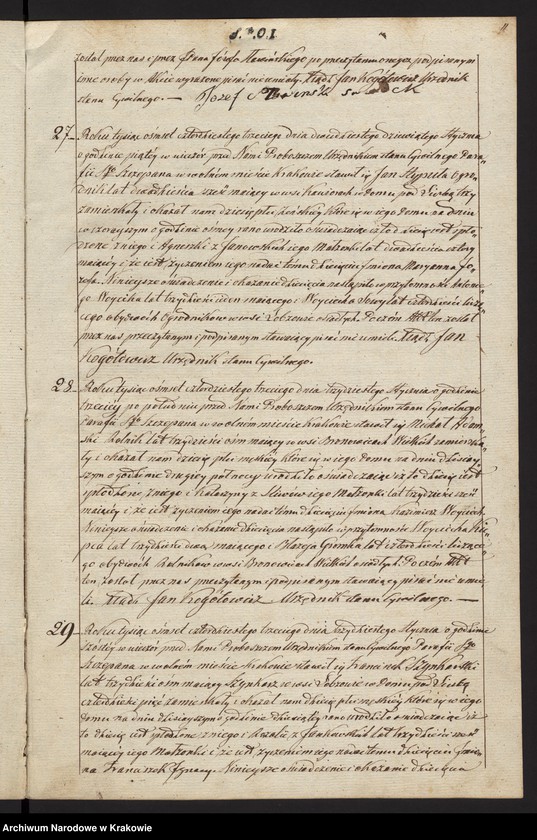 11
został przez nas i przez Pana Józefa po przeczytaniu onegoż podpisanym
inne osoby w Akcie wyrażone pisać nie umieją. Xiądz Jan Rogólowicz Urzędnik
stanu Cywilnego. — Jozef
27. Roku tysiąc ośmset czterdziestego trzeciego dnia dwudziestego dziewiątego Stycznia
o godzinie piątej w wieczór, przed Nami Proboszczem Urzędnikiem stanu Cywilnego Para-
fii Sgo Szczepana w wolnem mieście Krakowie stawił się Jan Ogro-
dnik lat dwadzieścia sześć mający w wsi w Domu pod Liczbą trzy
zamieszkały i okazał nam dziecię płci żeńskiej które się w jego Domu na dniu
wczorajszym o godzinie osmej rano urodziło oświadczając iż to dziecię jest spło-
dzone z niego i Agnieszki z Janowskich jego Małżonki lat dwadzieścia cztery
mającej i że jest życzeniem jego nadać temu dziecięciu Imiona Maryanna Jó-
zefa. Niniejsze oświadczenie i okazanie dziecięcia nastąpiło w przytomności
Woycicha lat trzydzieści jeden mającego i Woyciecha lat czterdzieści liczą-
cego obydwóch Ogrodników w wsi Łobzowie osiadłych. Poczém Akt ten został
przez nas przeczytanym i podpisanym stawający pisać nie umieli. Xiądz Jan
Rogólowicz Urzędnik stanu Cywilnego.
28. Roku tysiąc ośmset czterdziestego trzeciego dnia trzydziestego Stycznia o godzinie
trzeciej po południu przed Nami Proboszczem Urzędnikiem stanu Cywilnego
Parafii Sgo Szczepana w wolnem mieście Krakowie stawił się Michał
Rolnik lat trzydzieści ośm mający w wsi Bronowicach Wielkich zamieszka-
ły i okazał nam dziecię płci męskiej które się w jego Domu na dniu dzisiej-
szym o godzinie drugiej północy urodziło oświadczając iż to dziecię jest
spłodzone z niego i Katarzyny z jego Małżonki lat trzydzieści sześć
mającej i że jest życzeniem jego nadać temu dziecięciu Imiona Kazimierz Woyciech
Niniejsze oświadczenie i okazanie dziecięcia nastąpiło w przytomności Woyciecha
lat trzydzieści dwa mającego i Błażeja Gzomka lat czterdzieści liczące-
go obydwóch Rolników w wsi Bronowicach Wielkich osiadłych. Poczém Akt
ten został przez nas przeczytanym i podpisanym stawający pisać nie umie-
li. Xiądz Jan Rogólowicz Urzędnik stanu Cywilnego. —
29. Roku tysiąc ośmset czterdziestego trzeciego dnia trzydziestego Stycznia o godzinie
szóstej w wieczór przed Nami Proboszczem Urzędnikiem stanu Cywilnego Parafii Sgo
Szczepana w wolnem mieście Krakowie stawił się Franciszek Szynkarski
lat trzydzieści ośm mający Szynkarz w wsi Łobzowie w Domu pod Liczbą
czterdzieści pięć zamieszkały i okazał nam dziecię płci męskiej które się w jego
domu na dniu dzisiejszym o godzinie dziesiątej rano urodziło oświadczając iż
to dziecię jest spłodzone z niego i Rozalii z Jankowskich lat trzydzieści sześć
mającej jego Małżonki i że jest życzeniem jego nadać temu dziecięciu Imio-
na Franciszek Ignacy. Niniejsze oświadczenie i okazanie dziecięcia
Archiwum Narodowe w Krakowie